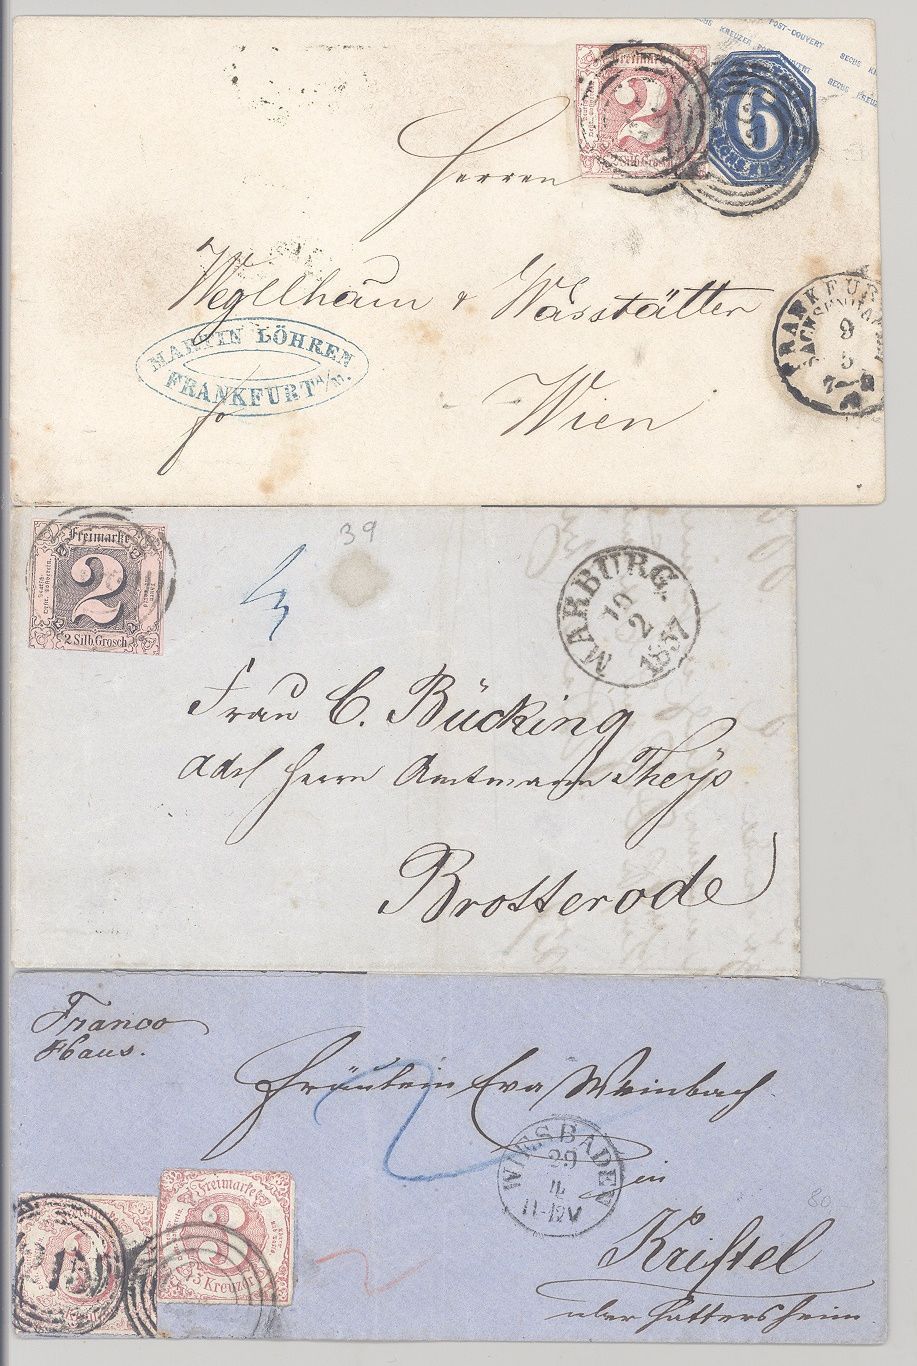 POST-COUVERT SECHS
SECHS KREUZER POST-COUVERT
SECHS KREUZER
Freimarke
2
2 Silb. Grosch.
6
Herren
Wegelhaun & Wasstätter
Wien
MARTIN LÖHREN
FRANKFURT A/M.
FRANKFURT
SACHSENHAUSEN
9
5
7-8
Freimarke
2
2 Silb. Grosch.
39
MARBURG.
19
2
1857
Frau C. Bücking
Herrn Amtmann Theys
Brotterode
Franco
Haus.
Fräulein Eva Weinbach
in
Kriftel
über Hattersheim
WIESBADEN
29
4
11-12 V
80
2
Freimarke
3
3 Kreuzer
3